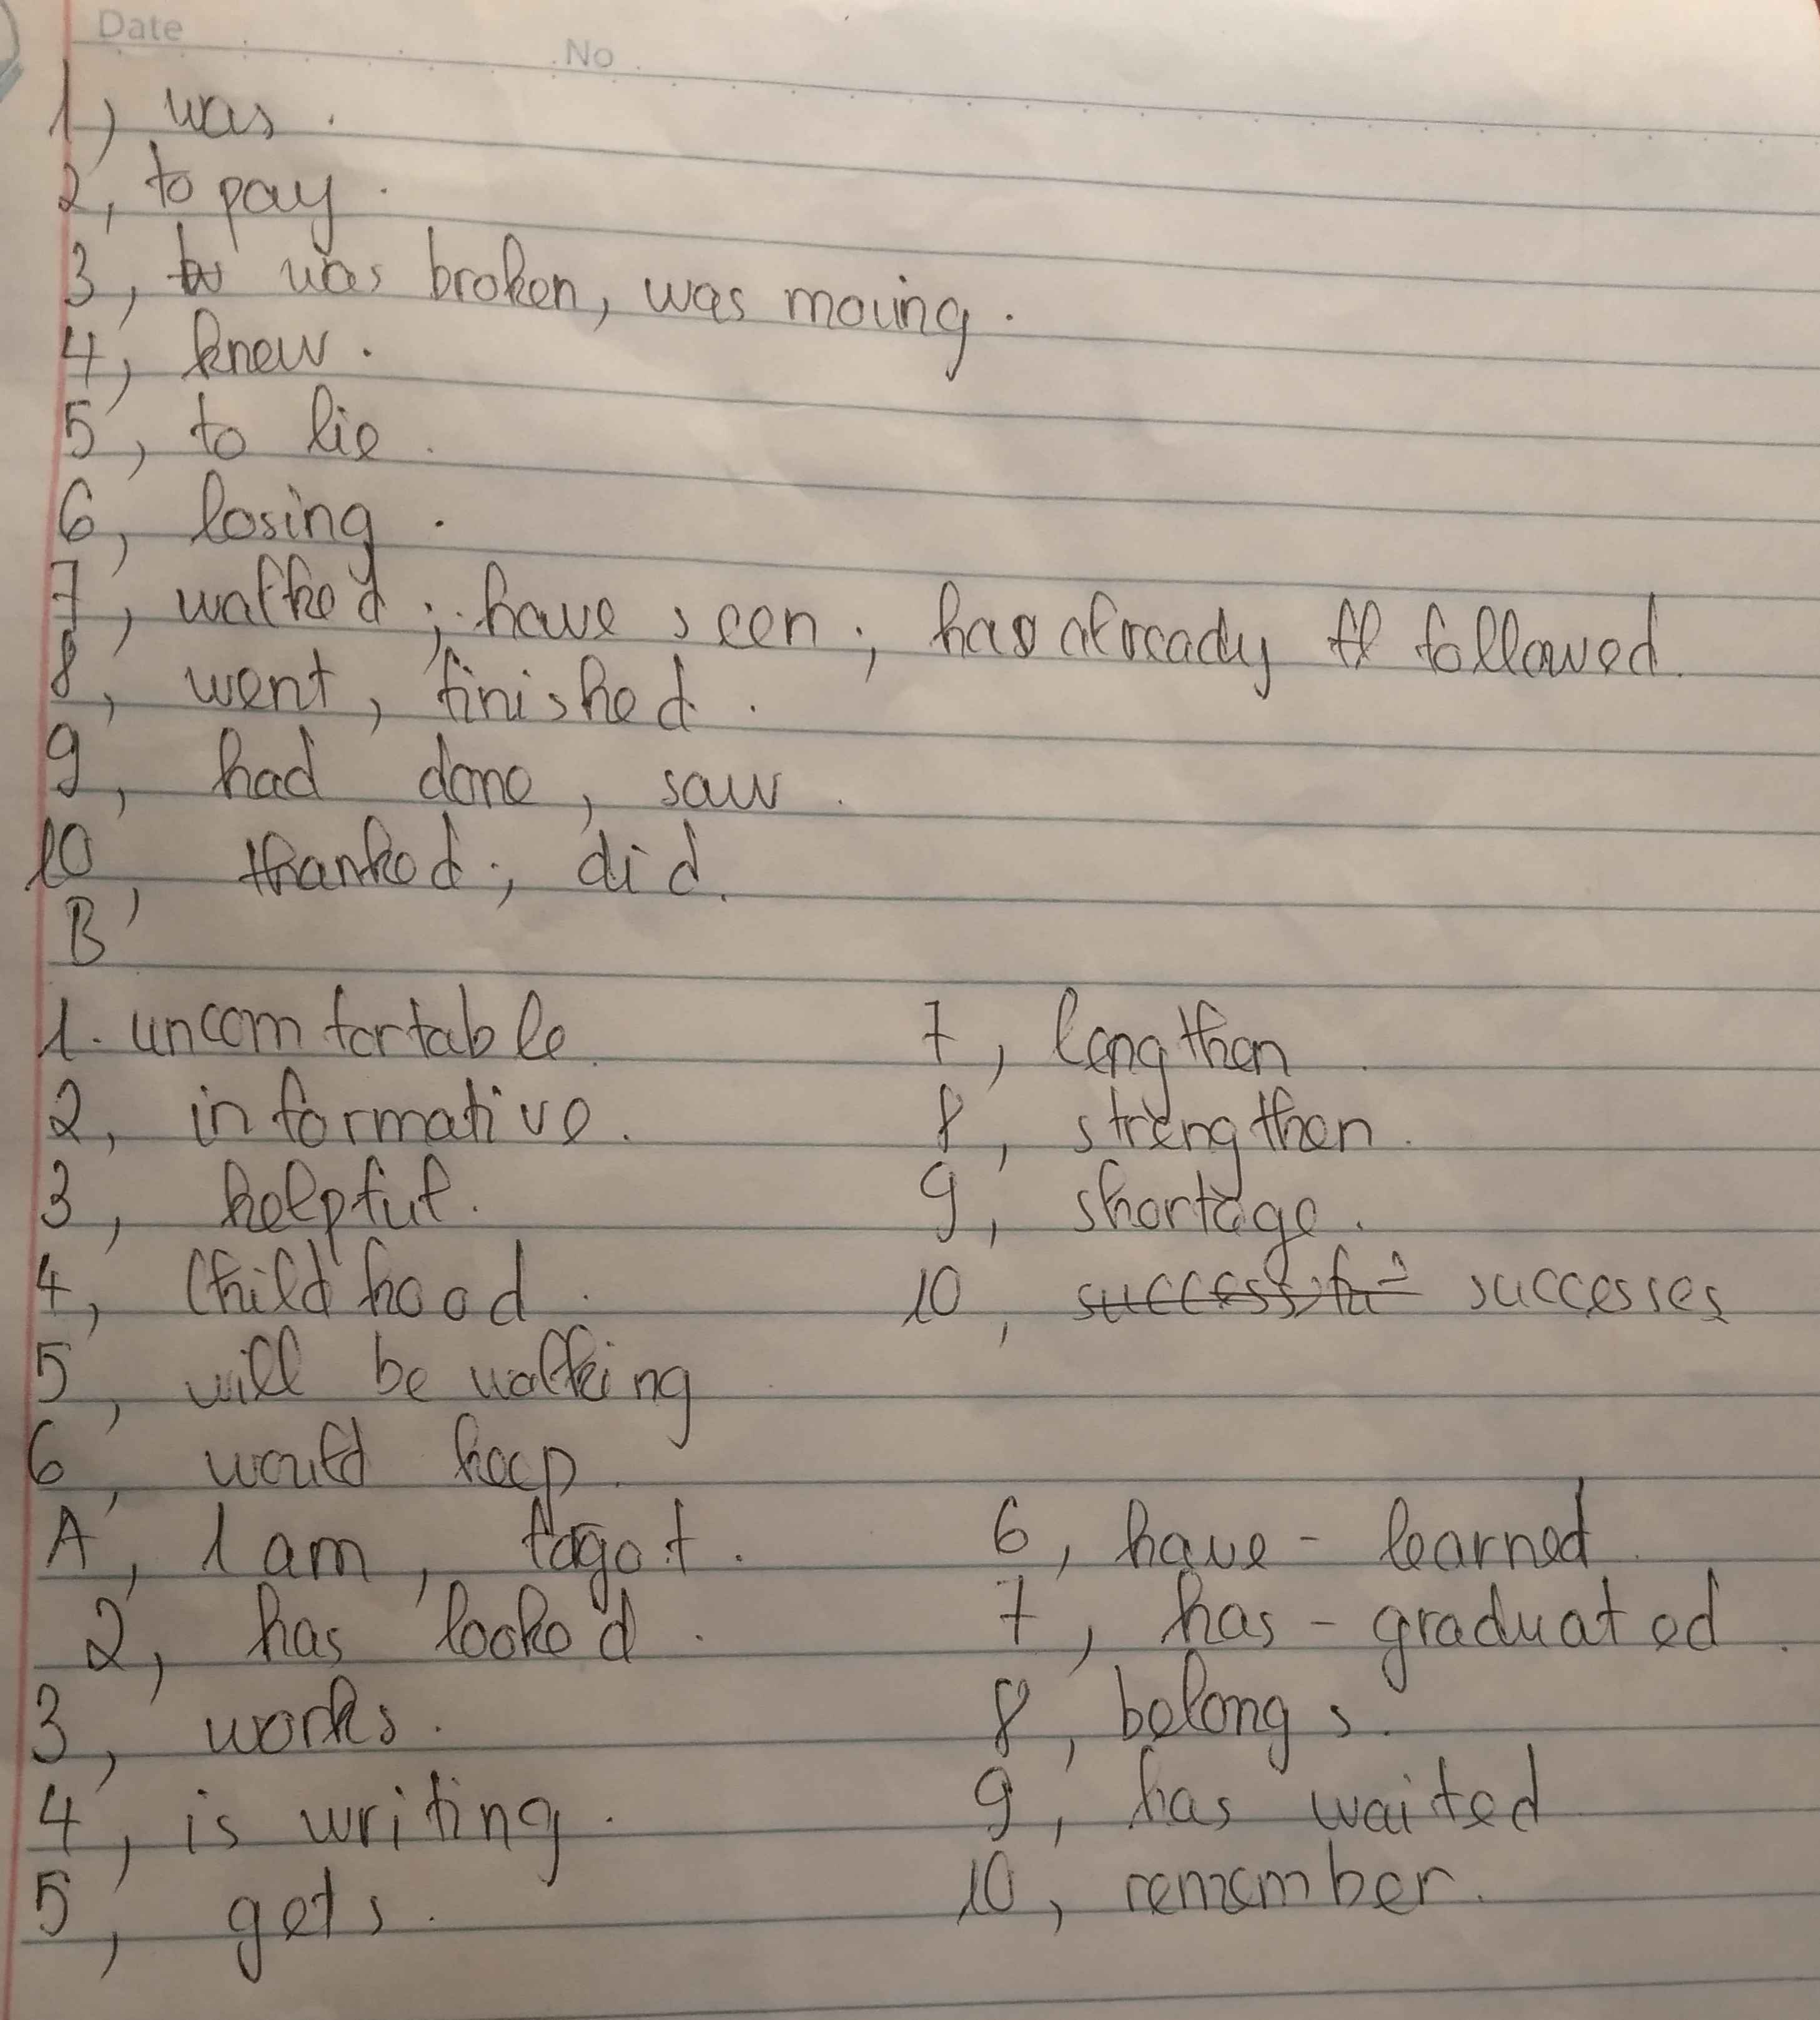 Date
No
1, was.
2, to pay.
3, was broken, was moving.
4, knew.
5, to lie.
6, losing.
7, walked; have seen; has already followed.
8, went, finished.
9, had done, saw.
10, thanked; did.
B
1. uncomfortable.
2, informative.
3, helpful.
4, Childhood.
5, will be walking
6, would keep.
7, lengthen.
8, strengthen.
9, shortage.
10, successes
A, 1 am, fogot.
2, has looked.
3, works.
4, is writing.
5, gets.
6, have - learned.
7, has - graduated.
8, belongs.
9, has waited
10, remember.